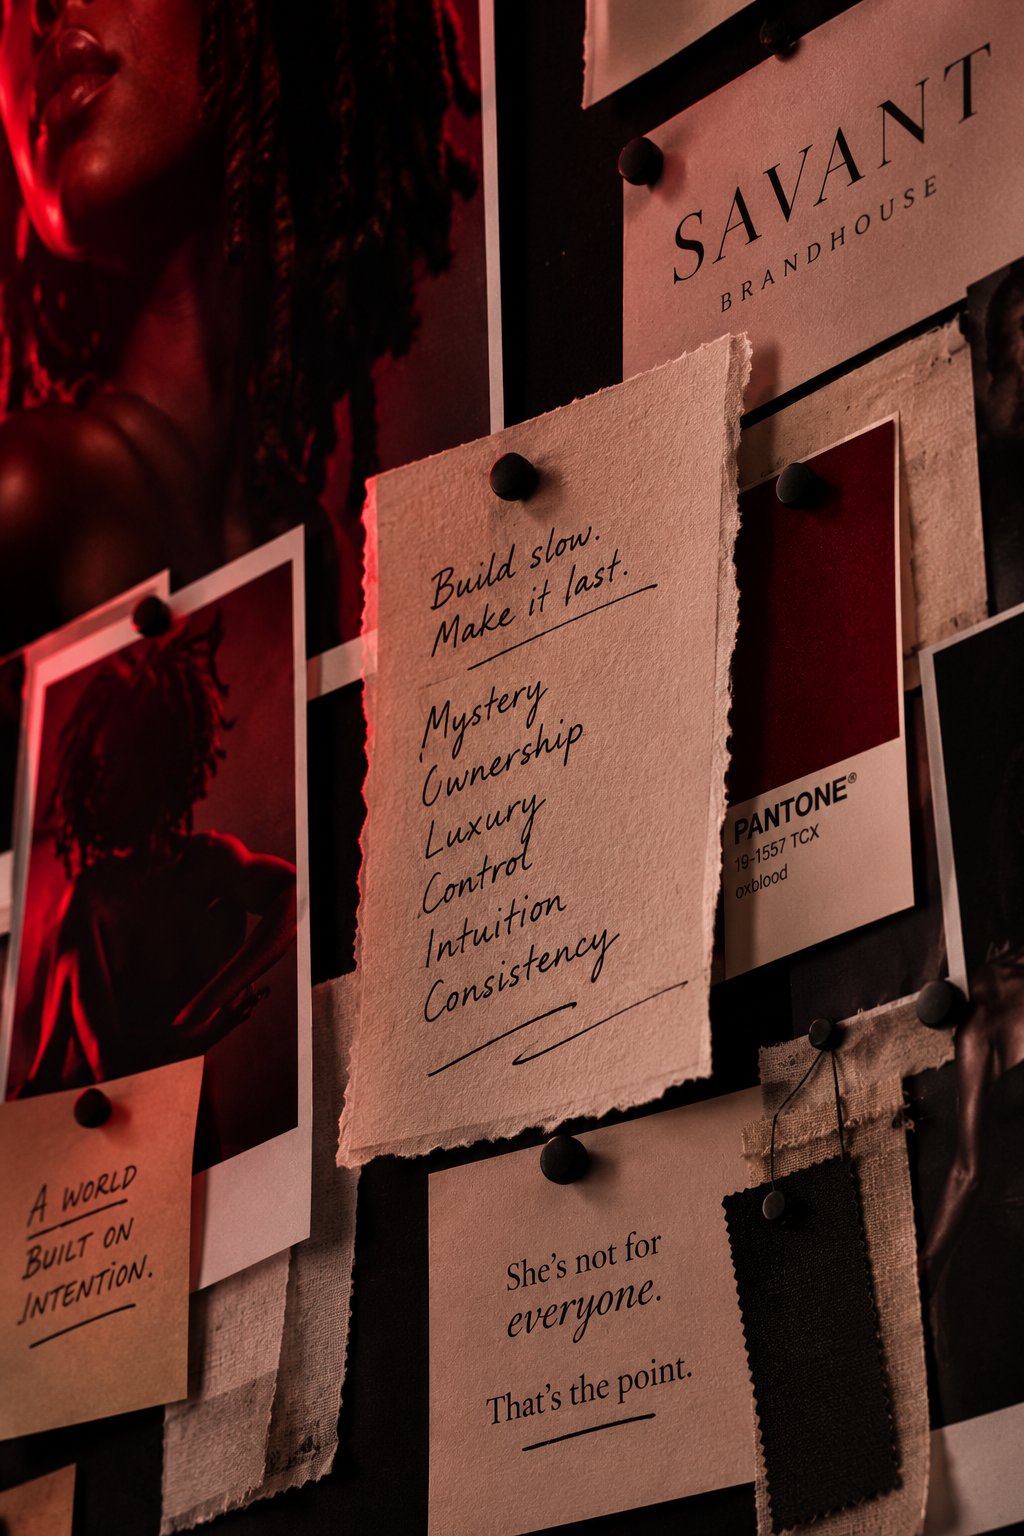 SAVANT
BRANDHOUSE
Build slow.
Make it last.
Mystery
Ownership
Luxury
Control
Intuition
Consistency
PANTONE®
19-1557 TCX
oxblood
A WORLD
BUILT ON
INTENTION.
She's not for
everyone.
That's the point.